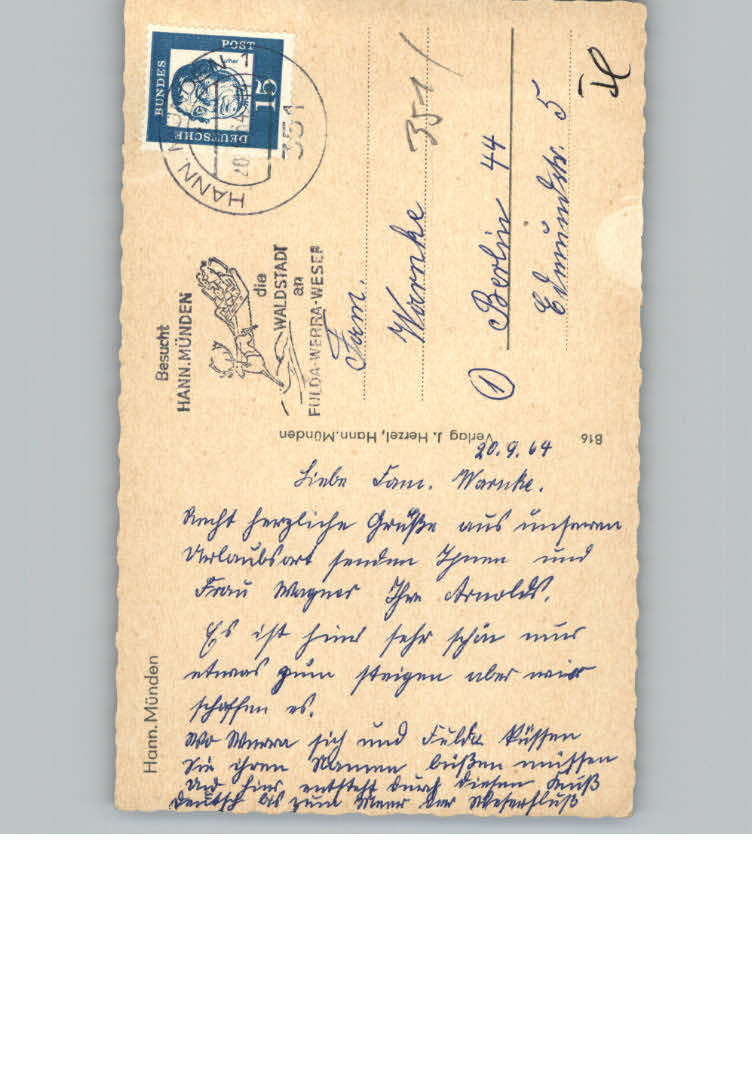 DEUTSCHE BUNDESPOST
15
Luther
HANN. MÜNDEN 1
351
Besucht
HANN. MÜNDEN
die
WALDSTADT
an
FULDA-WERRA-WESER
351
Fam.
Warnke
① Berlin 44
Edmundstr. 5
Verlag J. Herzel, Hann. Münden
B16
Hann. Münden
20.9.64
Liebe Fam. Warnke.
Recht herzliche Grüße aus unseren
Urlaubsort senden Ihnen und
Frau Wagner Ihre Arnolds.
Es ist hier sehr schön nur
etwas zum steigen aber wir
schaffen es.
Wo Werra sich und Fulda küssen
Sie ihren Namen büßen müssen
Und hier entsteht durch diesen Kuß
Deutsch bis zum Meer der Weserfluß